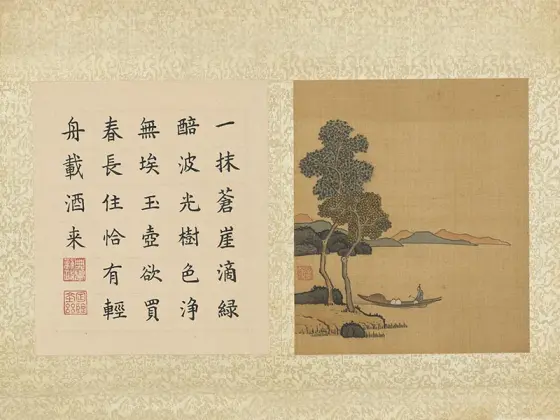 一抹蒼崖滴綠
醅波光樹色浄
無埃玉壺欲買
春長住恰有輕
舟載酒来